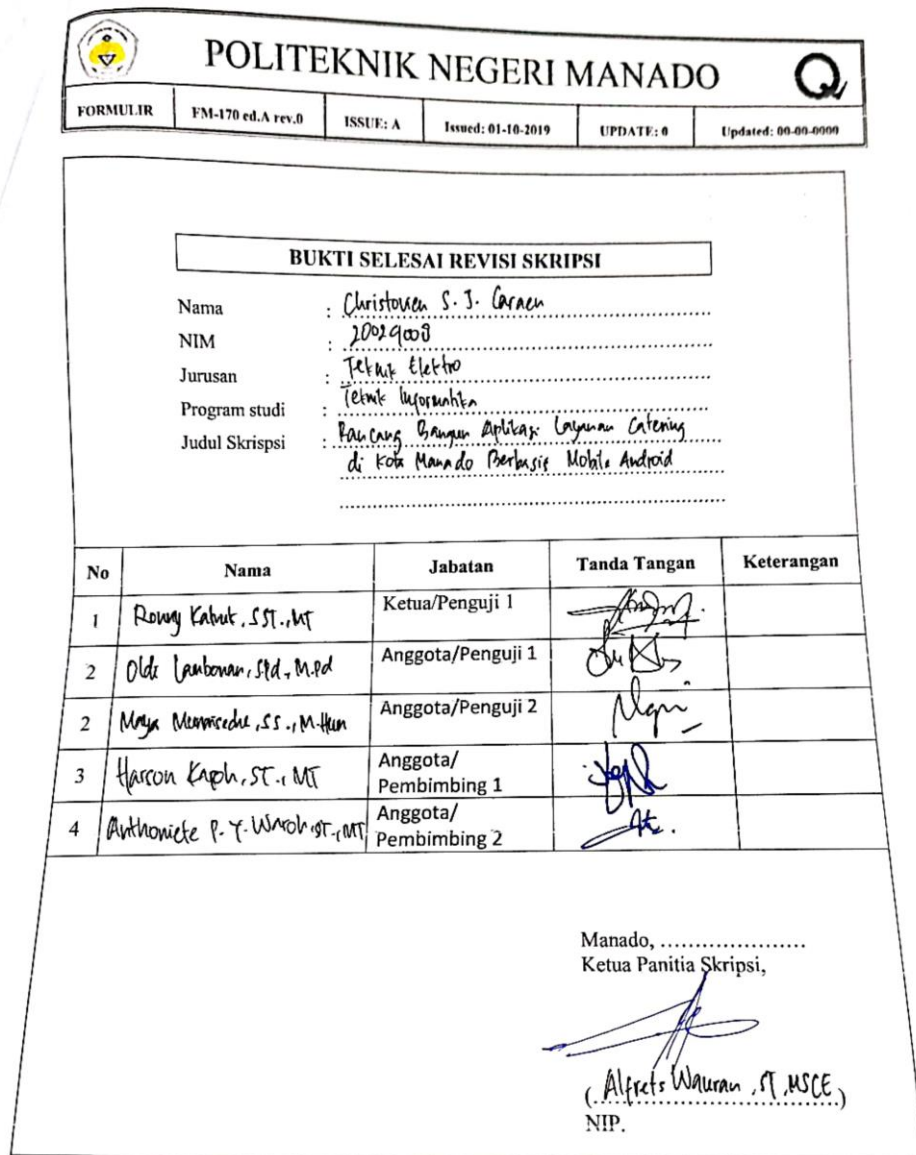 POLITEKNIK NEGERI MANADO
FORMULIR FM-170 ed.A rev.0 ISSUE: A Issued: 01-10-2019 UPDATE: 0 Updated: 00-00-0000
BUKTI SELESAI REVISI SKRIPSI
Nama : S. J.
NIM :
Jurusan : Teknik Elektro
Program studi : Teknik Informatika
Judul Skrispsi : Rancang Bangun Aplikasi Layanan Catering
di Kota Manado Berbasis Mobile Android
No Nama Jabatan Tanda Tangan Keterangan
1 SST., MT Ketua/Penguji 1
2 Olde S.Pd., M.Pd Anggota/Penguji 1
2 Maya SS., M.Hum Anggota/Penguji 2
3 ST., MT Anggota/
Pembimbing 1
4 P. Y. ST., MT Anggota/
Pembimbing 2
Manado, ......................
Ketua Panitia Skripsi,
(Alfrets Wauran, ST, MSCE)
NIP.